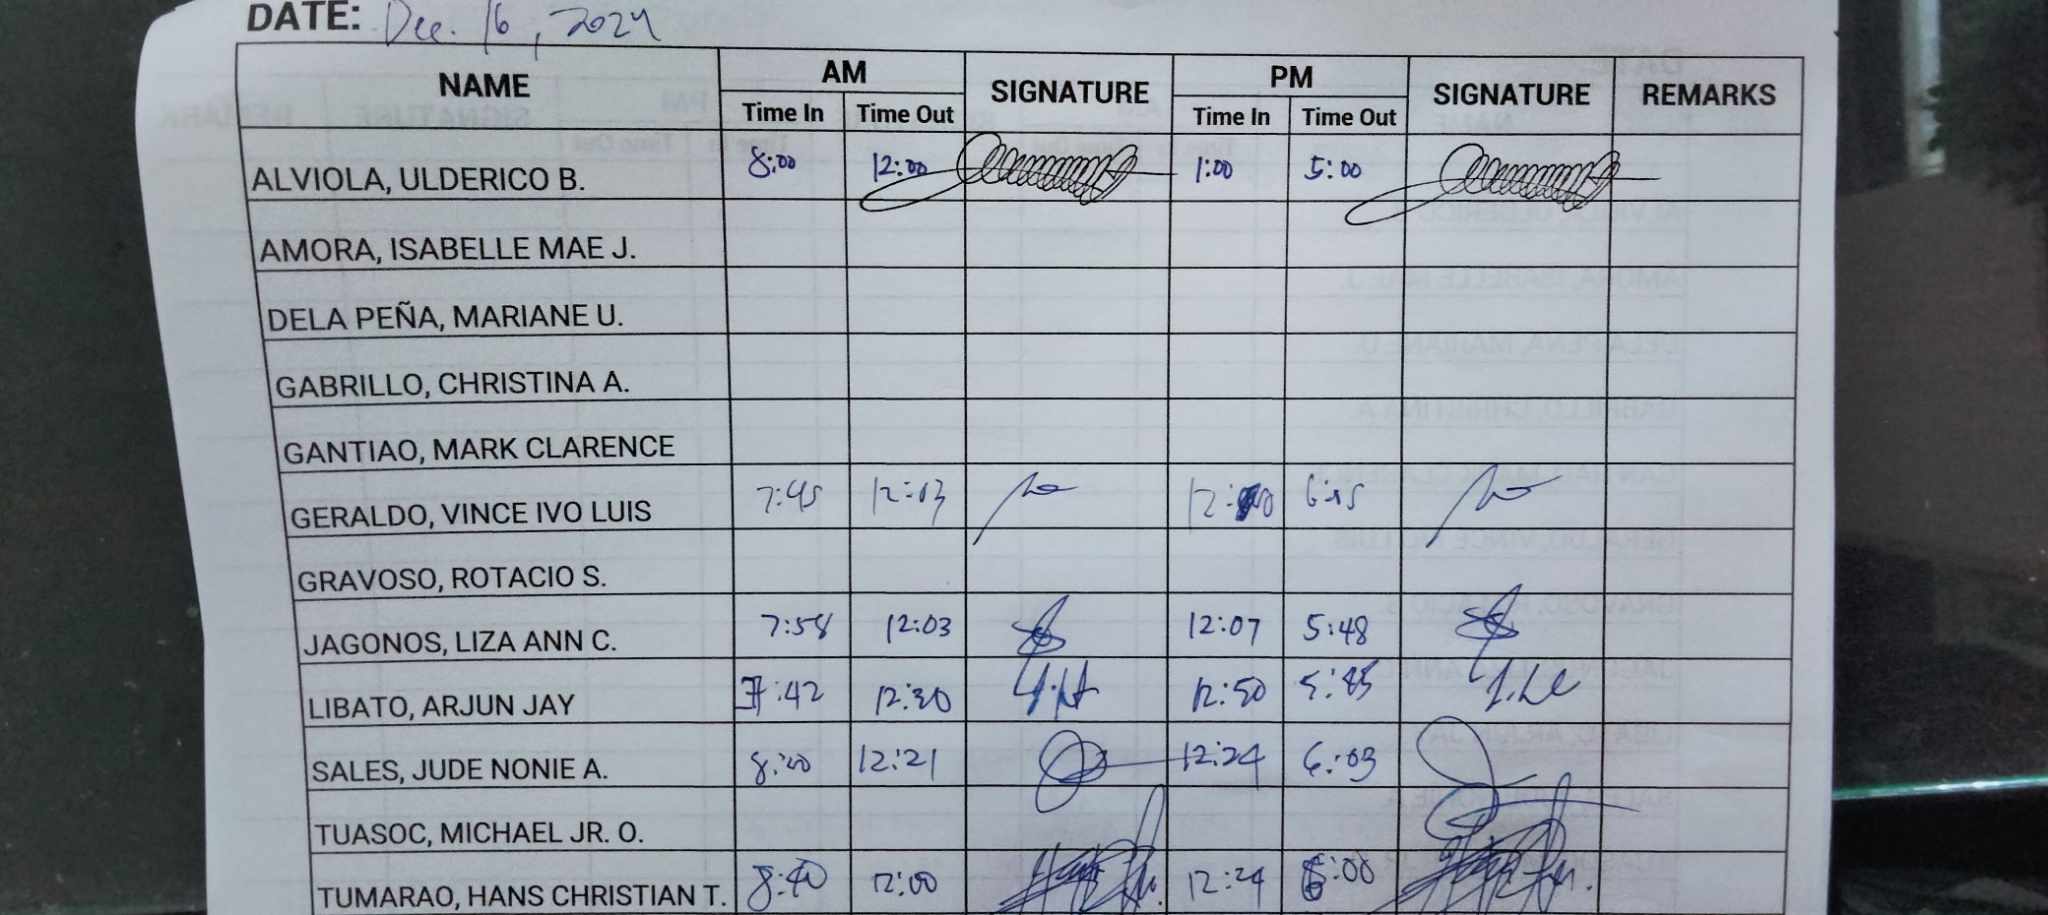 DATE: Dec. 16, 2024
NAME AM SIGNATURE PM SIGNATURE REMARKS
Time In Time Out Time In Time Out
ALVIOLA, ULDERICO B. 8:00 12:00 1:00 5:00
AMORA, ISABELLE MAE J.
DELA PEÑA, MARIANE U.
GABRILLO, CHRISTINA A.
GANTIAO, MARK CLARENCE
GERALDO, VINCE IVO LUIS 7:45 12:03
GRAVOSO, ROTACIO S.
JAGONOS, LIZA ANN C. 7:58 12:03 12:07 5:48
LIBATO, ARJUN JAY 7:42 12:30 12:50 5:45
SALES, JUDE NONIE A. 8:20 12:21 12:24 6:03
TUASOC, MICHAEL JR. O.
TUMARAO, HANS CHRISTIAN T. 8:40 12:00 12:24 6:00